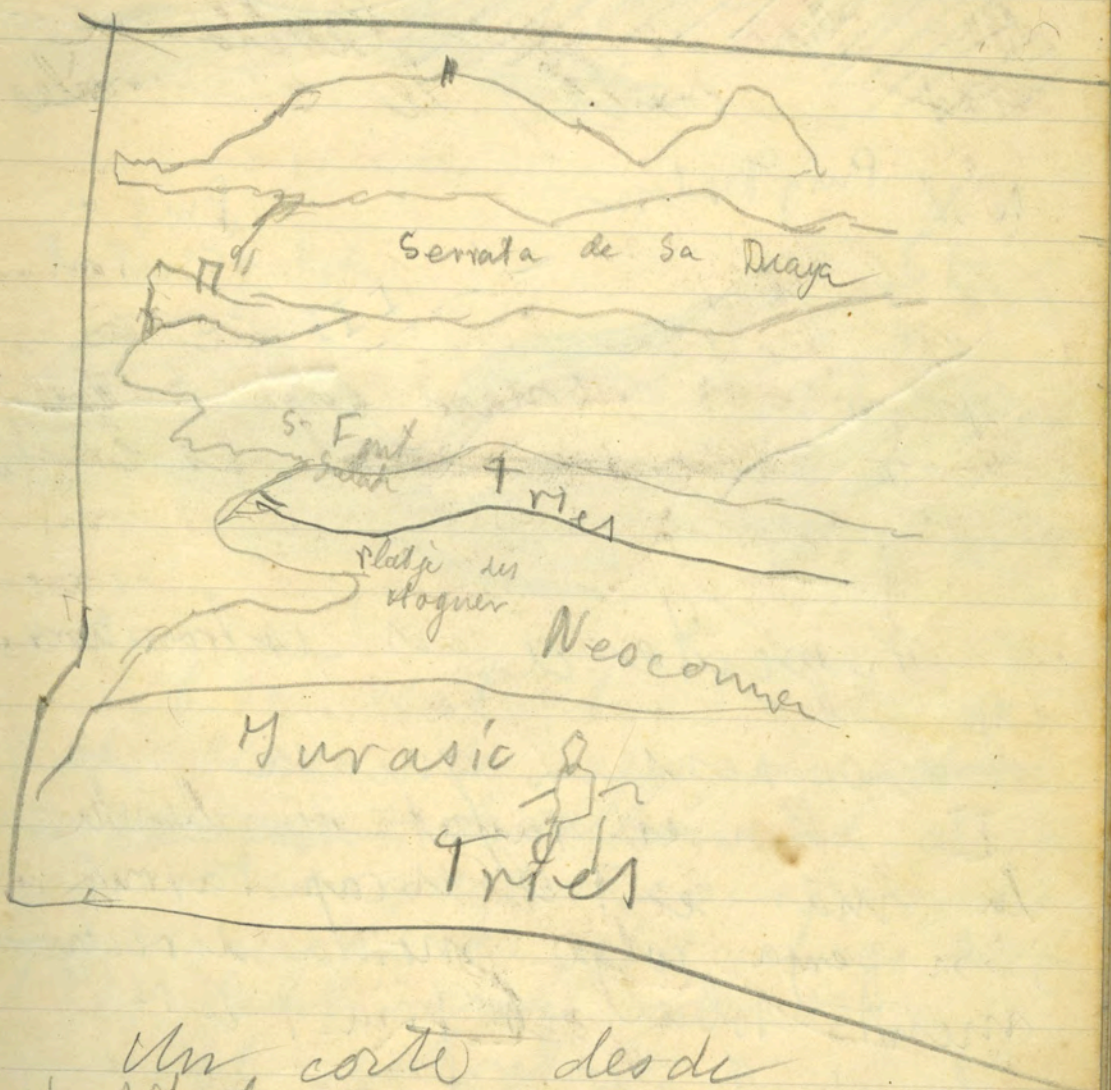 Serrata de Sa Draya
Sa Font
Salada
Tries
Platje des
Noguer
Neocomien
Jurasic
Tries
Un corte desde